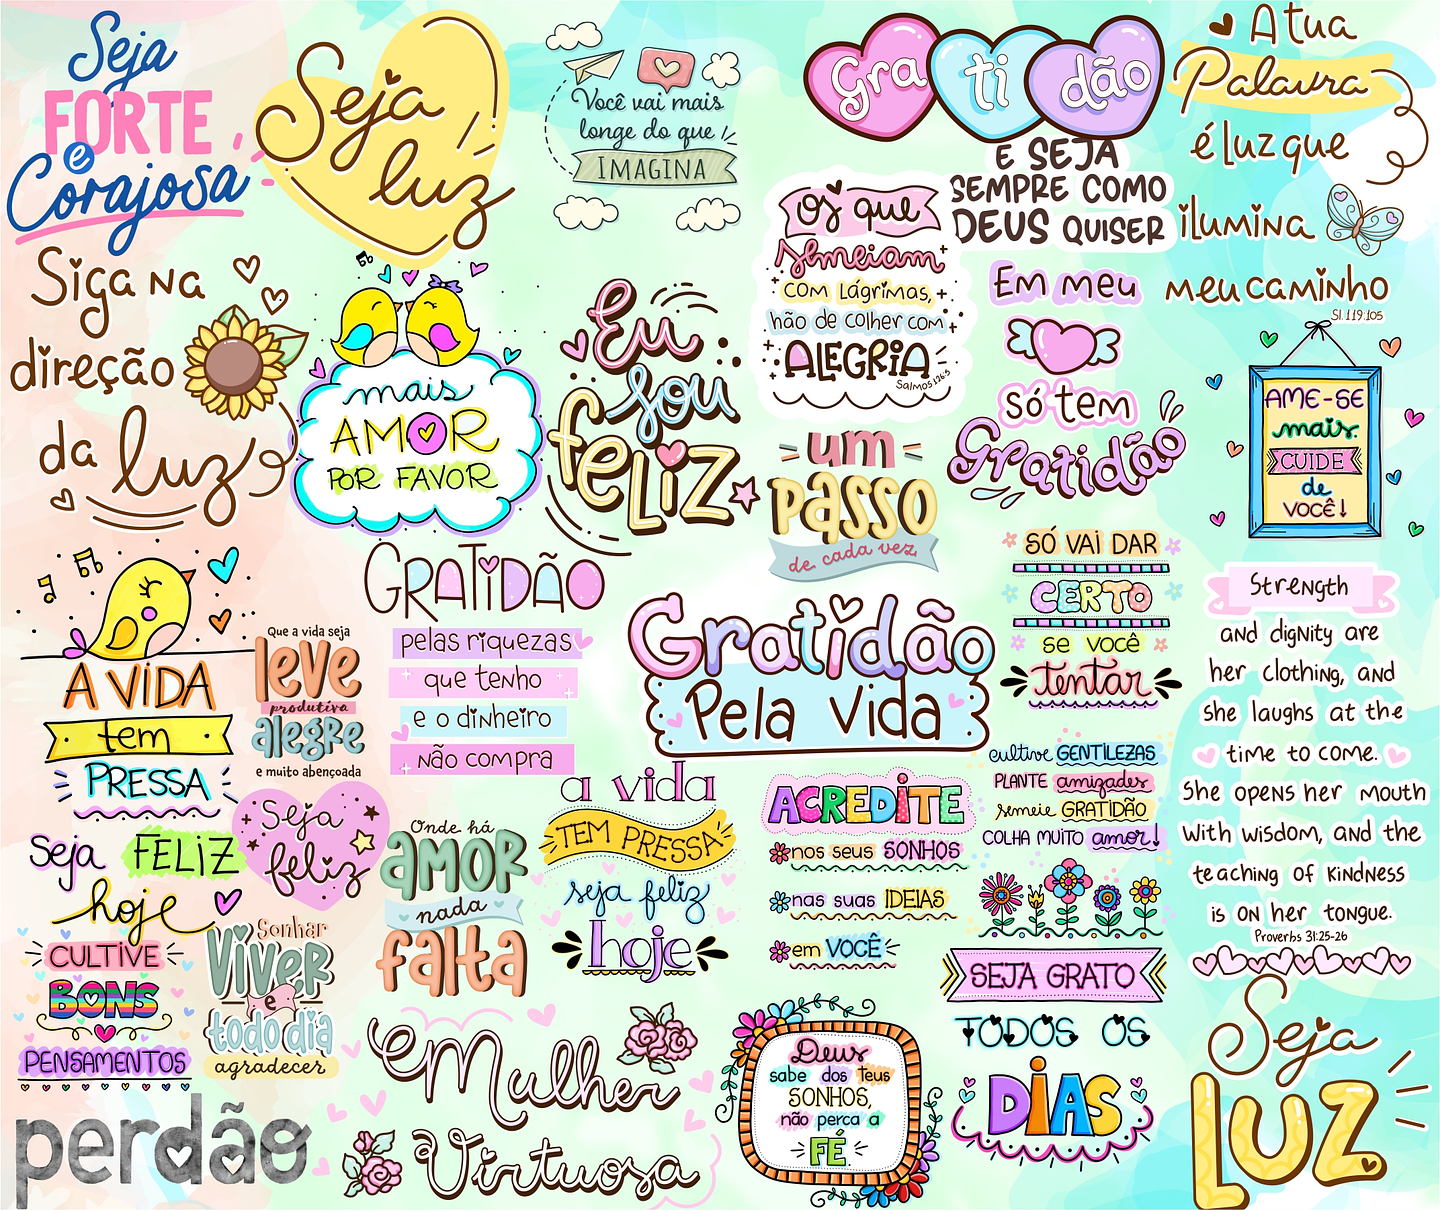 Seja
FORTE
e
Corajosa
Seja
luz
Você vai mais
longe do que
IMAGINA
Gra ti dão
E SEJA
SEMPRE COMO
DEUS QUISER
A tua
Palavra
é luz que
ilumina
meu caminho
Sl. 119:105
Siga na
direção
da luz
mais
AMOR
POR FAVOR
Eu
sou
feliz
Os que
semeiam
com lágrimas,
hão de colher com
ALEGRIA
Salmos 126:5
Em meu
só tem
Gratidão
AME-SE
mais.
CUIDE
de
VOCÊ!
um
passo
de cada vez
SÓ VAI DAR
CERTO
se você
tentar
A VIDA
tem
PRESSA
Seja FELIZ
hoje
Que a vida seja
leve
produtiva
alegre
e muito abençoada
GRATIDÃO
pelas riquezas
que tenho
e o dinheiro
não compra
Gratidão
Pela Vida
Strength
and dignity are
her clothing, and
She laughs at the
time to come.
She opens her mouth
With wisdom, and the
teaching of kindness
is on her tongue.
Proverbs 31:25-26
Seja
feliz
Onde há
amor
nada
falta
a vida
TEM PRESSA
seja feliz
hoje
ACREDITE
nos seus SONHOS
nas suas IDEIAS
em VOCÊ
cultive GENTILEZAS
PLANTE amizades
semeie GRATIDÃO
COLHA MUITO amor!
CULTIVE
BONS
PENSAMENTOS
Sonhar
Viver
e
todo dia
agradecer
SEJA GRATO
TODOS OS
DIAS
perdão
Mulher
Virtuosa
Deus
sabe dos teus
SONHOS,
não perca a
FÉ
Seja
LUZ